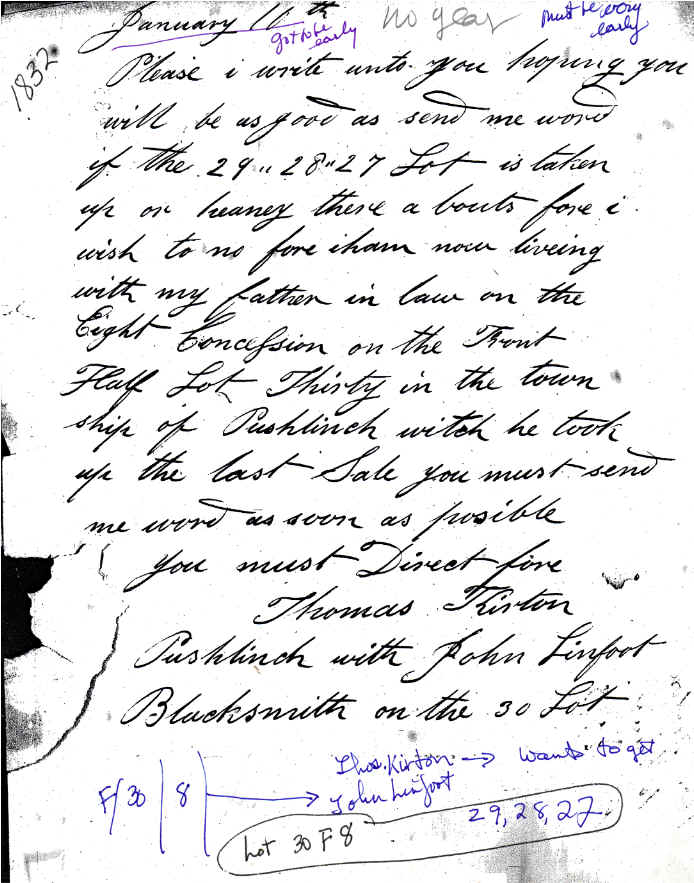 January 11th no year must be very
got to be early early
1832
Please i write unto you hoping you
will be as good as send me word
if the 29 " 28 " 27 Lot is taken
up or heaney there a bouts fore i
wish to no fore iham now liveing
with my father in law on the
Eight Concession on the Front
Half Lot Thirty in the town
ship of Pushlinch witch he took
up the last Sale you must send
me word as soon as posible
you must Direct fore
Thomas Kirton
Pushlinch with John Linfoot
Blacksmith on the 30 Lot
Thos. Kirton → wants to get
F/30 | 8 → John Linfoot
29, 28, 27
Lot 30 F 8